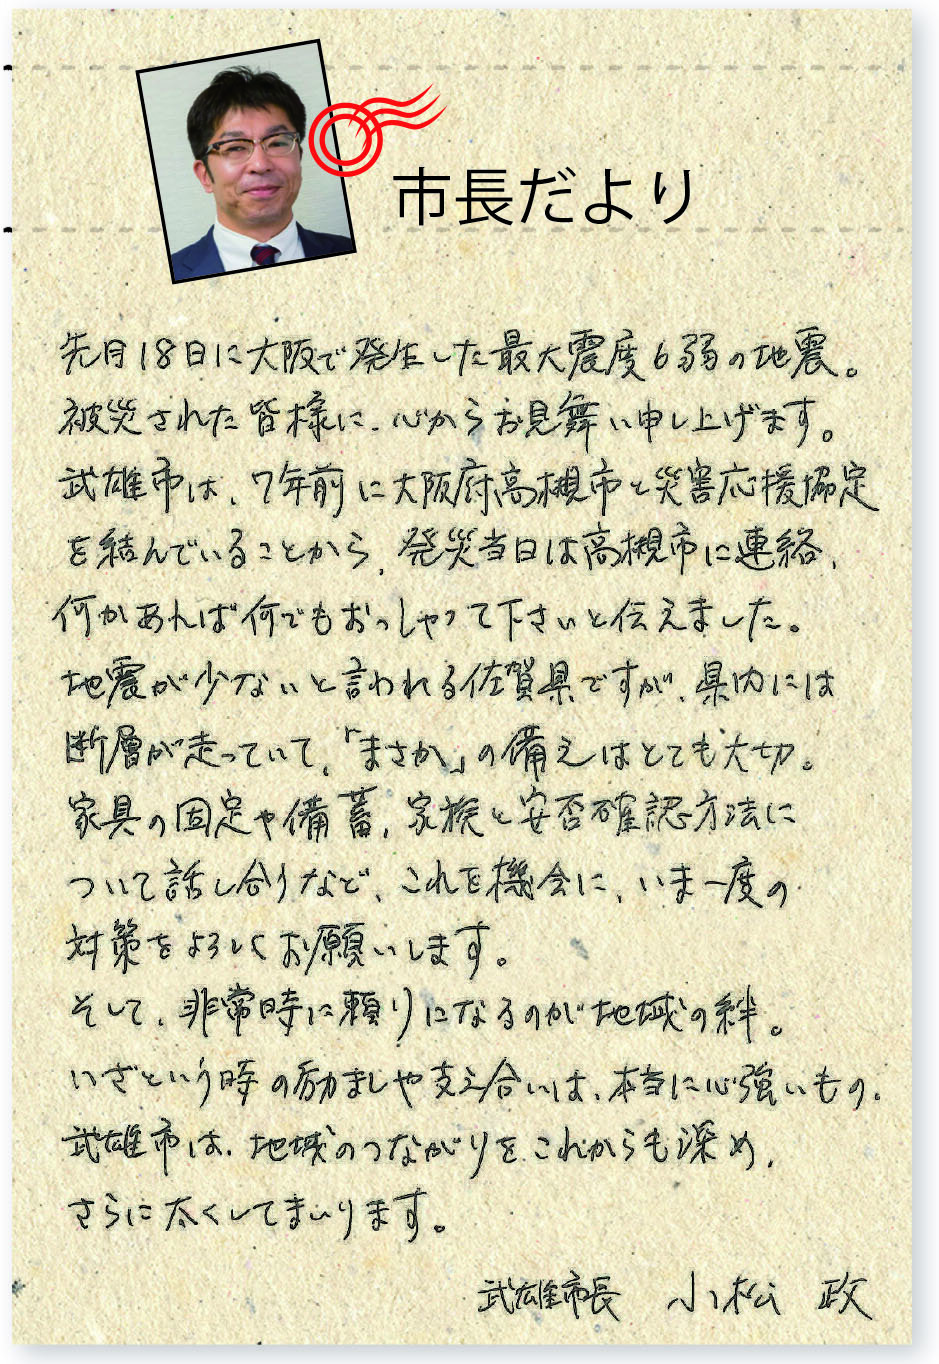 市長だより
先月18日に大阪で発生した最大震度6弱の地震。
被災された皆様に、心からお見舞い申し上げます。
武雄市は、7年前に大阪府高槻市と災害応援協定
を結んでいることから、発災当日は高槻市に連絡、
何かあれば何でもおっしゃって下さいと伝えました。
地震が少ないと言われる佐賀県ですが、県内には
断層が走っていて、「まさか」の備えはとても大切。
家具の固定や備蓄、家族と安否確認方法に
ついて話し合うなど、これを機会に、いま一度の
対策をよろしくお願いします。
そして、非常時に頼りになるのが地域の絆。
いざという時の励ましや支え合いは、本当に心強いもの。
武雄市は、地域のつながりをこれからも深め、
さらに太くしてまいります。
武雄市長 小松 政